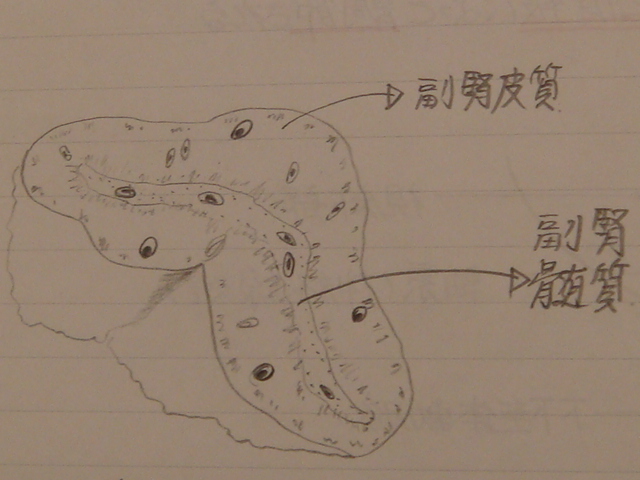 副腎皮質
副腎
髄質